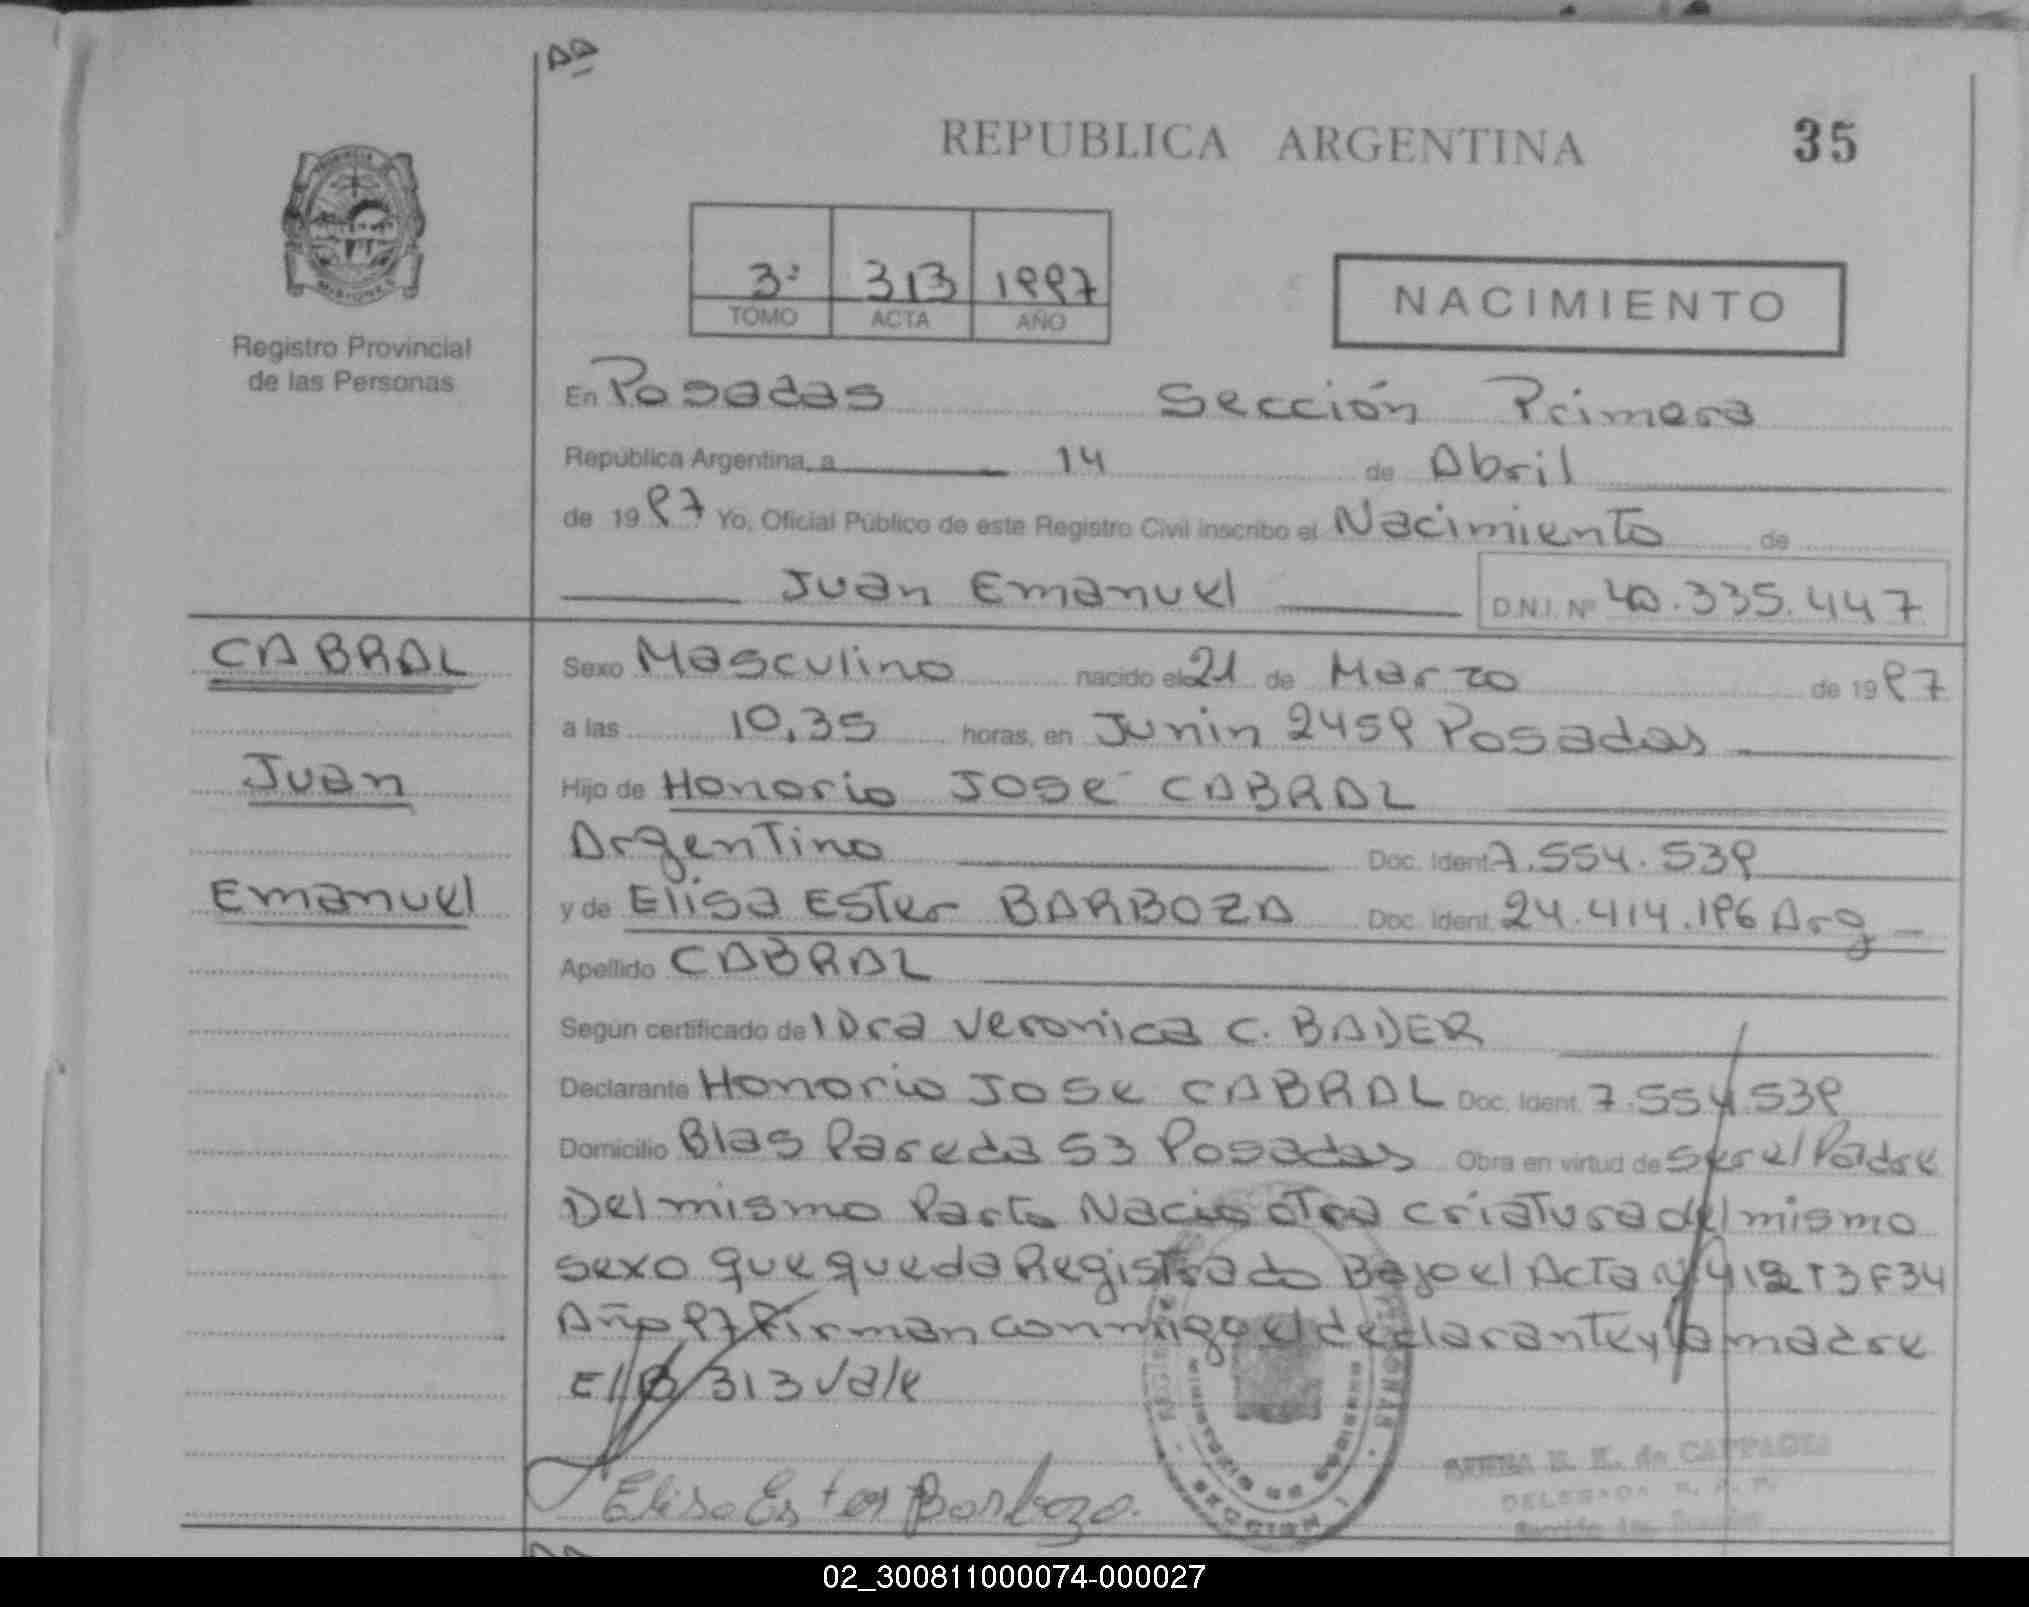 REPUBLICA ARGENTINA
35
3º 313 1997
TOMO ACTA AÑO
NACIMIENTO
MISIONES
Registro Provincial
de las Personas
En Posadas Sección Primera
República Argentina, a 14 de Abril
de 1997 Yo, Oficial Público de este Registro Civil inscribo el Nacimiento de
Juan Emanuel D.N.I. Nº 40.335.447
CABRAL
Juan
Emanuel
Sexo Masculino nacido el 21 de Marzo de 1997
a las 10,35 horas, en Junin 2459 Posadas
Hijo de Honorio José CABRAL
Argentino Doc. Ident. 7.554.539
y de Elisa Ester BARBOZA Doc. Ident. 24.414.196 Arg
Apellido CABRAL
Según certificado de Dra Veronica C. BADER
Declarante Honorio Jose CABRAL Doc. Ident. 7.554.539
Domicilio Blas Pareda 53 Posadas Obra en virtud de ser el Padre
Del mismo Parto Nacio otra criatura del mismo
sexo que queda Registrado Bajo el Acta T3 F34
Año 97 Firman conmigo el declarante y la madre
313 Vale
Elisa Ester Barboza.
SECCION
02_300811000074-000027